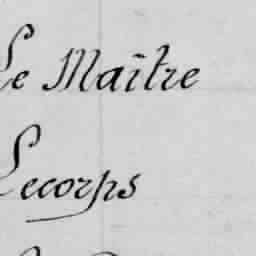 Le Maître
Lecorps